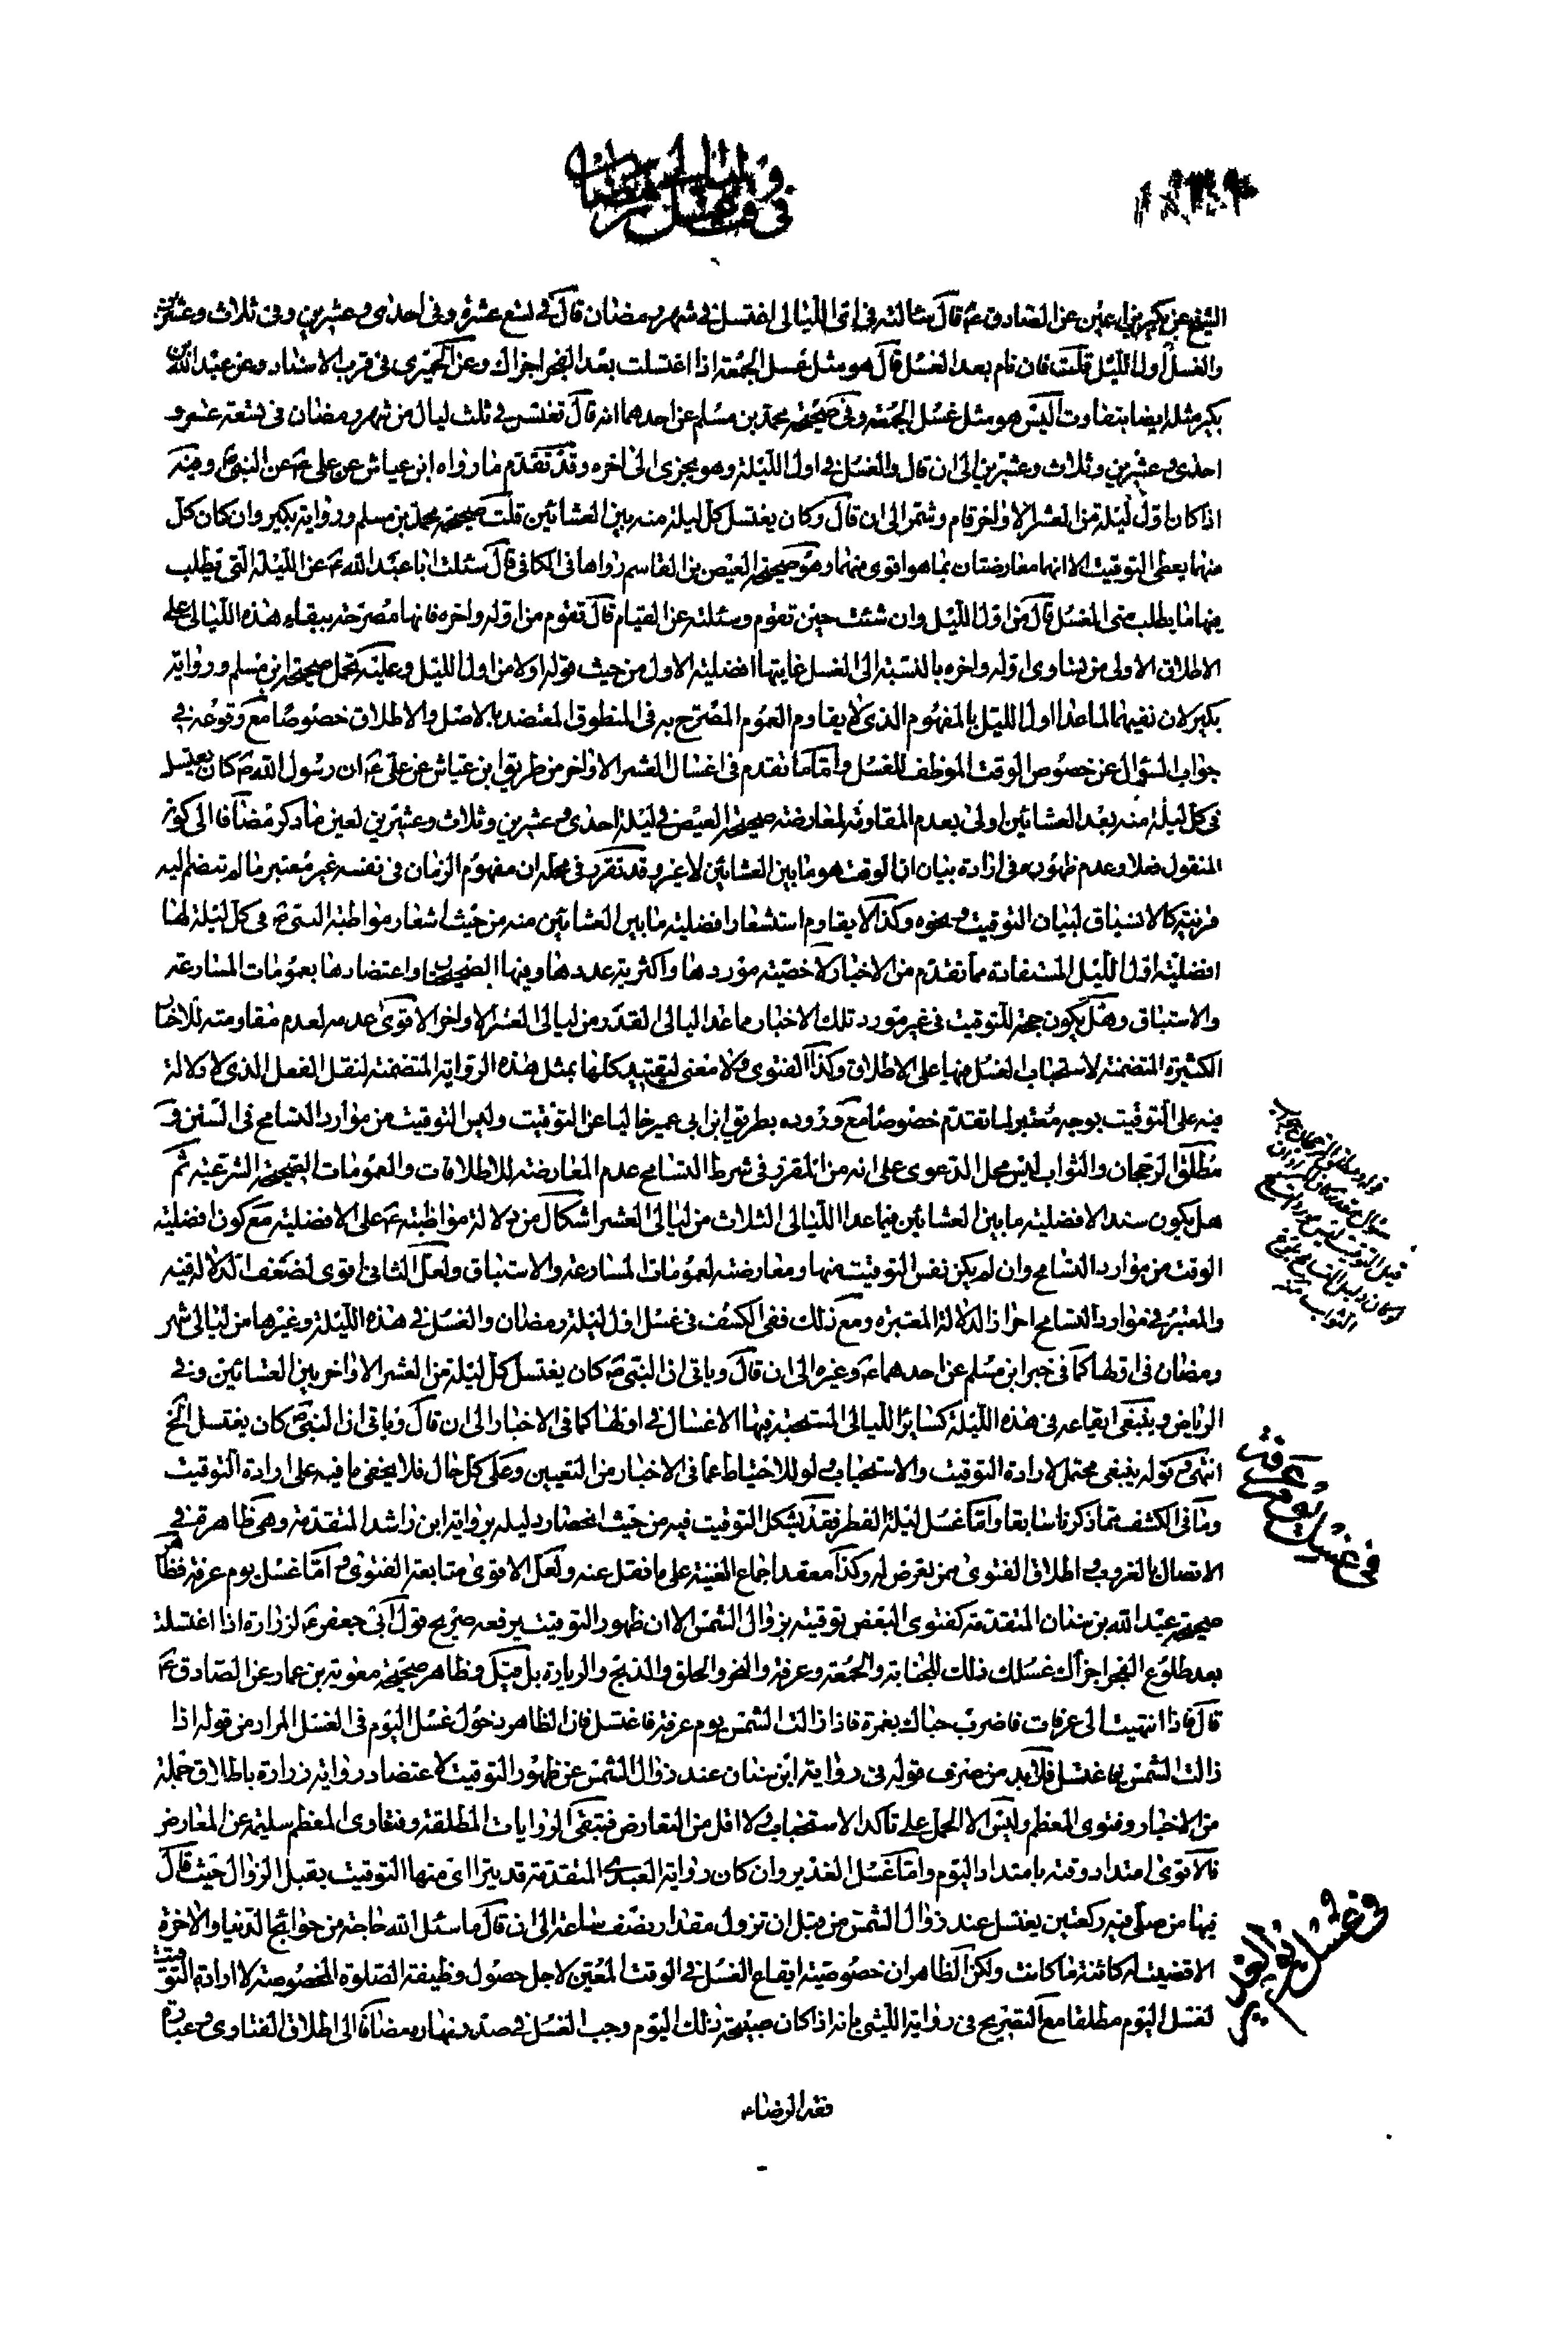 في وقت غسل ليالي شهر رمضان
الشيخ عن بكير بن اعين عن الصادق ع قال سالته في اي الليالي اغتسل في شهر رمضان قال في تسع عشرة وفي احدى وعشرين وفي ثلاث وعشرين
والغسل اول الليل قلت فان نام بعد الغسل قال هو مثل غسل الجمعة اذا اغتسلت بعد الفجر اجزاك وعن الحميري في قرب الاسناد وعن عبد الله بن
بكير مثله ايضا بتفاوت اليس هو مثل غسل الجمعة وفي صحيحة محمد بن مسلم عن احدهما انه قال تغتسل في ثلث ليال من شهر رمضان في تسعة عشر و
احدى وعشرين وثلاث وعشرين الى ان قال والغسل في اول الليلة وهو يجزي الى اخره وقد تقدم ما رواه ابن عياش عن علي ع عن النبي ص ومنه
اذا كان اول ليلة من العشر الاواخر قام وشمر الى ان قال وكان يغتسل كل ليلة منه بين العشائين قلت صحيحة محمد بن مسلم ورواية بكير وان كان كل
منهما يعطي التوقيت الا انهما معارضتان بما هو اقوى منهما وهو صحيحة العيص بن القاسم رواها في الكافي قال سئلت ابا عبد الله ع عن الليلة التي يطلب
فيها ما يطلب متى الغسل قال من اول الليل وان شئت حين تقوم وسئلته عن القيام قال تقوم من اوله واخره فانها مصرحة ببقاء هذه الليالي على
الاطلاق الاولى من تساوى اوله واخره بالنسبة الى الغسل غايتها افضلية الاول من حيث قوله اولا من اول الليل وعليه تحمل صحيحة ابن مسلم ورواية
بكير لان نفيهما لما عدا اول الليل بالمفهوم الذي لا يقاوم العموم المصرح به في المنطوق المعتضد بالاصل والاطلاق خصوصا مع وقوعه في
جواب السؤال عن خصوص الوقت الموظف للغسل واما ما تقدم في اغسال العشر الاواخر من طريق ابن عياش عن علي ع ان رسول الله ص كان يغتسل
في كل ليلة منه بعد العشائين اولى بعدم المقاومة لمعارضته صحيحة العيص في ليلة احدى وعشرين وثلاث وعشرين لعين ما ذكر مضافا الى كونه
المنقول فعلا وعدم ظهوره في ارادة بيان ان الوقت هو ما بين العشائين لا غير وقد تقرر في محله ان مفهوم الزمان في نفسه غير معتبر ما لم تنضم اليه
قرينة كالانسباق لبيان التوقيت ونحوه وكذا لا يقاوم استشعار افضلية ما بين العشائين منه من حيث اشعار مواظبة النبي ص في كل ليلة لها
افضلية اول الليل المستفادة مما تقدم من الاخبار لاخصية موردها واكثرية عددها وفيها الصحيحان واعتضادها بعمومات المسارعة
والاستباق وهل يكون حجة للتوقيت في غير مورد تلك الاخبار مما عدا ليالي القدر من ليالي العشر الاواخر الاقوى عدمه لعدم مقاومته للاخبار
الكثيرة المتضمنة لاستحباب الغسل فيها على الاطلاق وكذا الفتوى ولا معنى لتقييد كلها بمثل هذه الرواية المتضمنة لنقل الفعل الذي لا دلالة
فيه على التوقيت بوجه معتبر لما تقدم خصوصا مع وروده بطريق ابن ابي عمير خاليا عن التوقيت وليس التوقيت من موارد التسامح في السنن في
مطلق الرجحان والثواب ليس محل الدعوى على انه من المقرر في شرط التسامح عدم المعارضة للاطلاقات والعمومات الصحيحة الشرعية ثم
هل يكون سند الافضلية ما بين العشائين فيما عدا الليالي الثلاث من ليالي العشر اشكال من دلالة مواظبته ع على الافضلية مع كون افضلية
الوقت من موارد التسامح وان لم يكن نفس التوقيت منها ومعارضته لعمومات المسارعة والاستباق ولعل الثاني اقوى لضعف الدلالة فيه
والمعتبر في موارد التسامح احراز الدلالة المعتبرة ومع ذلك ففي الكشف في غسل اول ليلة رمضان والغسل في هذه الليلة وغيرها من ليالي شهر
رمضان في اولها كما في خبر ابن مسلم عن احدهما ع وغيره الى ان قال وياتي ان النبي ص كان يغتسل كل ليلة من العشر الاواخر بين العشائين وفي
الرياض وينبغي ايقاعه في هذه الليلة كسائر الليالي المستحبة فيها الاغسال في اولها كما في الاخبار الى ان قال وياتي ان النبي ص كان يغتسل الخ
انتهى وقوله ينبغي محتمل لارادة التوقيت والاستحباب ولو للاحتياط عما في الاخبار من التعيين وعلى كل حال فلا يخفى ما فيه على ارادة التوقيت
وما في الكشف مما ذكرنا سابقا واما غسل ليلة الفطر فقد يشكل التوقيت فيه من حيث انحصار دليله برواية ابن راشد المتقدمة وهي ظاهرة في
الاتصال بالغروب واطلاق الفتوى ممن تعرض له وكذا معقد اجماع الغنية على ما نقل عنه ولعل الاقوى متابعة الفتوى واما غسل يوم عرفة فظاهر
صحيحة عبد الله بن سنان المتقدمة كفتوى البعض توقيته بزوال الشمس الا ان ظهور التوقيت يرفعه صريح قول ابي جعفر ع لزرارة اذا اغتسلت
بعد طلوع الفجر اجزاك غسلك ذلك للجنابة والجمعة وعرفة والنحر والحلق والذبح والزيارة بل قيل وظاهر صحيحة معوية بن عمار عن الصادق ع
قال فاذا انتهيت الى عرفات فاضرب خباك بنمرة فاذا زالت الشمس يوم عرفة فاغتسل فان الظاهر دخول غسل اليوم في الغسل المراد من قوله اذا
زالت الشمس فاغتسل فلابد من صرف قوله في رواية ابن سنان عند زوال الشمس عن ظهور التوقيت لاعتضاد رواية زرارة باطلاق جملة
من الاخبار وفتوى المعظم وليس الا الحمل على تاكد الاستحباب ولا اقل من التعارض فتبقى الروايات المطلقة وفتاوى المعظم سليمة عن المعارض
فالاقوى امتداد وقته بامتداد اليوم واما غسل الغدير وان كان رواية العبدي المتقدمة قد يترااى منها التوقيت بقبل الزوال حيث قال
فيها من صلى فيه ركعتين يغتسل عند زوال الشمس من قبل ان تزول مقدار نصف ساعة الى ان قال ما سئل الله حاجة من حوائج الدنيا والاخرة
الا قضيت له كائنة ما كانت ولكن الظاهر ان خصوصية ايقاع الغسل في الوقت المعين لاجل حصول وظيفة الصلوة المخصوصة لا ارادة التوقيت
لغسل اليوم مطلقا مع التصريح في رواية الليثي بانه اذا كان صبيحة ذلك اليوم وجب الغسل في صدر نهاره مضافا الى اطلاق الفتاوى وعبارة
فقه الرضاء
في غسل يوم عرفة
في غسل يوم الغدير